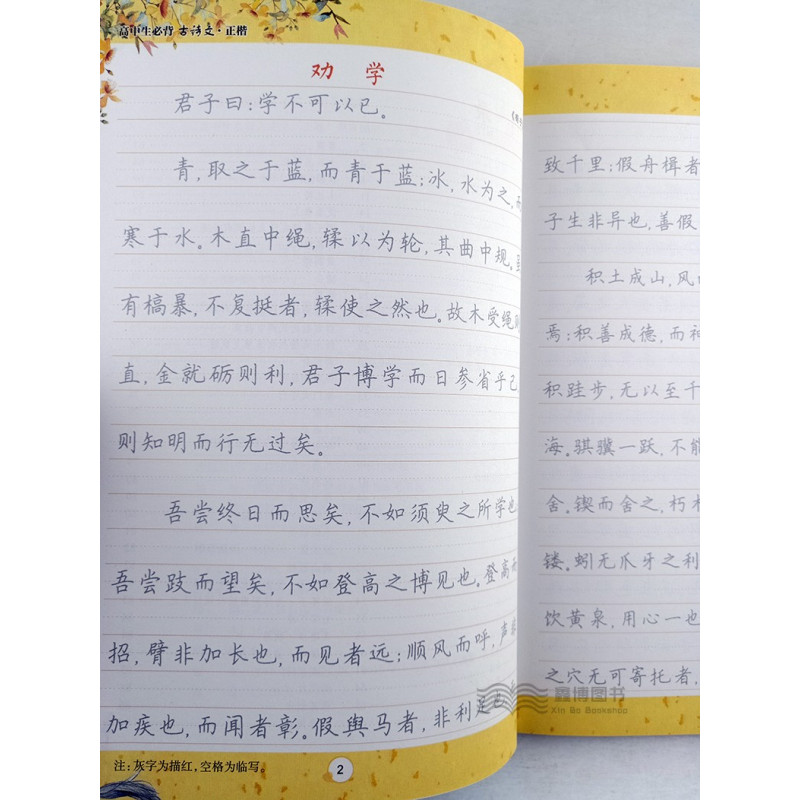 高中生必背古诗文·正楷
劝学
君子曰:学不可以已。
青,取之于蓝,而青于蓝;冰,水为之,而
寒于水。木直中绳,𫐓以为轮,其曲中规。虽
有槁暴,不复挺者,𫐓使之然也。故木受绳则
直,金就砺则利,君子博学而日参省乎己,
则知明而行无过矣。
吾尝终日而思矣,不如须臾之所学也;
吾尝跂而望矣,不如登高之博见也。登高而
招,臂非加长也,而见者远;顺风而呼,声非
加疾也,而闻者彰。假舆马者,非利足也,
注:灰字为描红,空格为临写。
2
致千里;假舟楫者
子生非异也,善假
积土成山,风
焉;积善成德,而神
积跬步,无以至千
海。骐骥一跃,不能
舍。锲而舍之,朽木
镂。蚓无爪牙之利
饮黄泉,用心一也
之穴无可寄托者,
鑫博图书
Xin Bo Bookshop